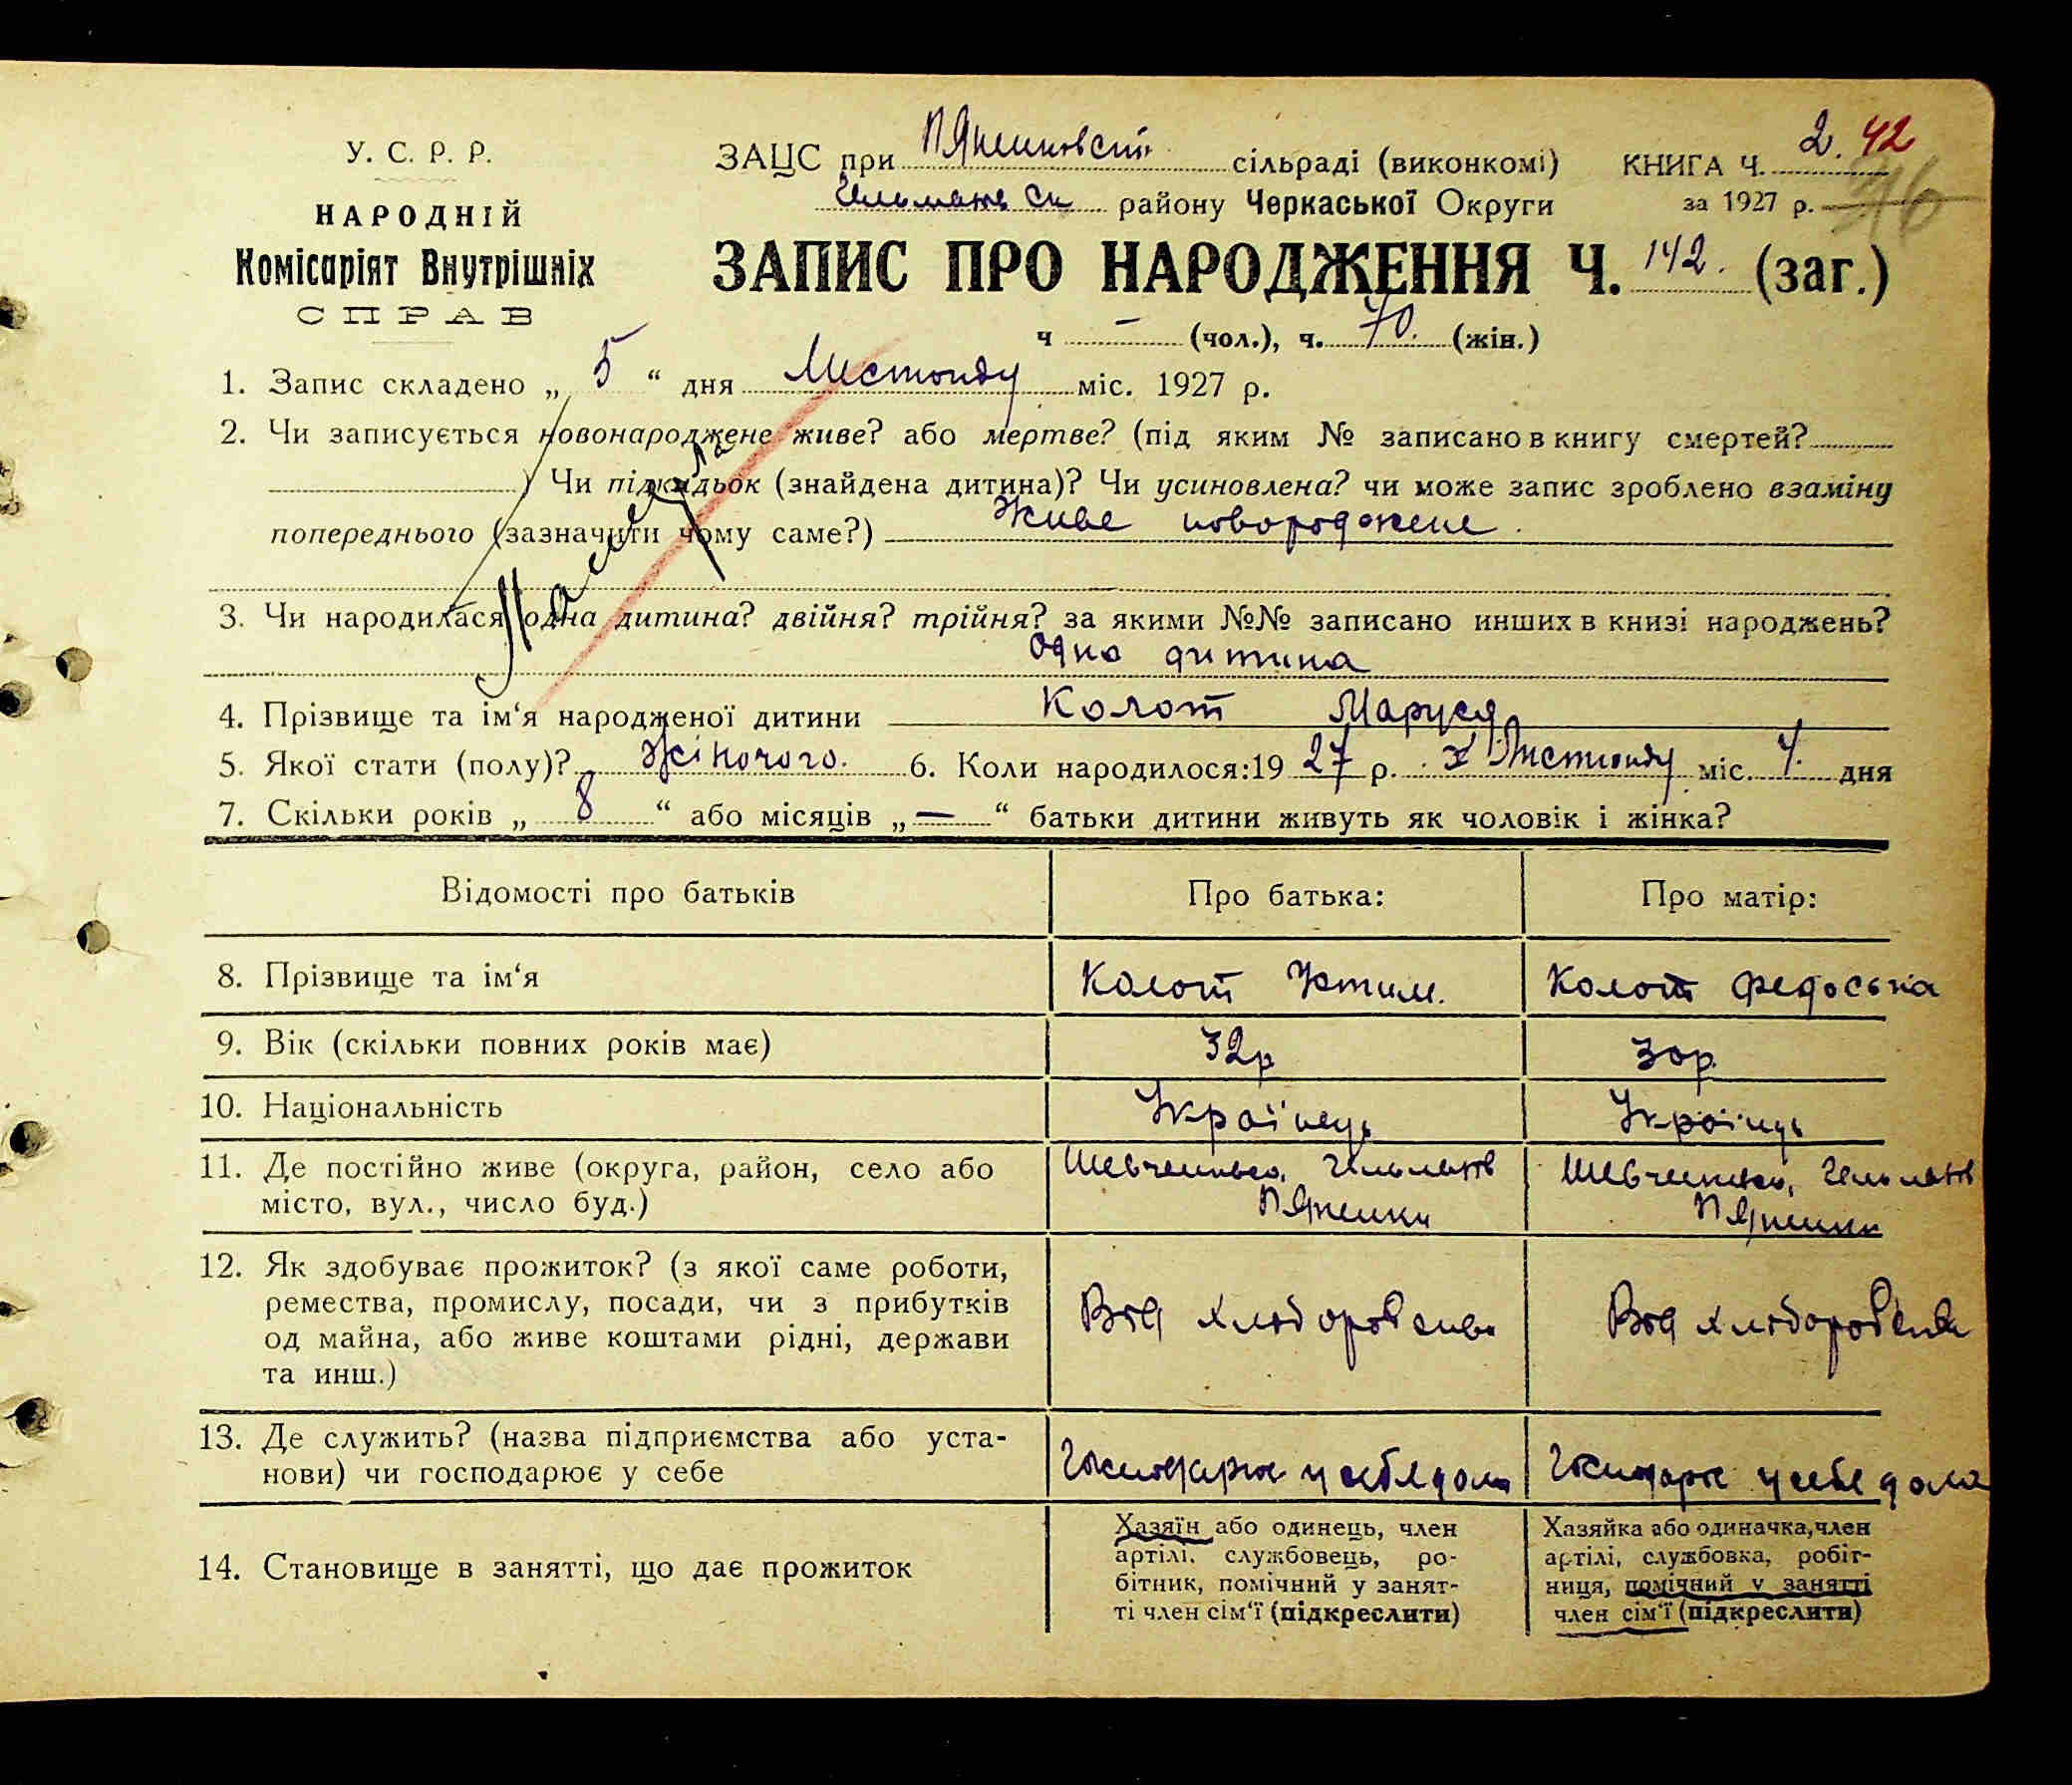 У. С. Р. Р.
НАРОДНІЙ
Комісаріят Внутрішніх
СПРАВ
ЗАЦС при сільраді (виконкомі) КНИГА Ч. 2. 42
району Черкаської Округи за 1927 р. 76
ЗАПИС ПРО НАРОДЖЕННЯ Ч. 142. (заг.)
ч — (чол.), ч. 70. (жін.)
1. Запис складено „ 5 “ дня Листопаду міс. 1927 р.
2. Чи записується новонароджене живе? або мертве? (під яким № записано в книгу смертей?
) Чи підкидьок (знайдена дитина)? Чи усиновлена? чи може запис зроблено взаміну
попереднього (зазначити чому саме?) Живе новороджене.
3. Чи народилася одна дитина? двійня? трійня? за якими №№ записано инших в книзі народжень?
Одна дитина
4. Прізвище та ім‘я народженої дитини Колот Маруся
5. Якої стати (полу)? Жіночого. 6. Коли народилося: 19 27 р. Листопаду міс. 4. дня
7. Скільки років „ 8 “ або місяців „ — “ батьки дитини живуть як чоловік і жінка?
Відомості про батьків Про батька: Про матір:
8. Прізвище та ім‘я Колот Устим. Колот Федоська
9. Вік (скільки повних років має) 32р 30р.
10. Національність Українець Українць
11. Де постійно живе (округа, район, село або
місто, вул., число буд.)
12. Як здобуває прожиток? (з якої саме роботи,
ремества, промислу, посади, чи з прибутків
од майна, або живе коштами рідні, держави
та инш.)
13. Де служить? (назва підприємства або уста-
нови) чи господарює у себе
14. Становище в занятті, що дає прожиток
Хазяїн або одинець, член
артілі, службовець, ро-
бітник, помічний у занят-
ті член сім‘ї (підкреслити)
Хазяйка або одиначка, член
артілі, службовка, робіт-
ниця, помічний у занятті
член сім‘ї (підкреслити)